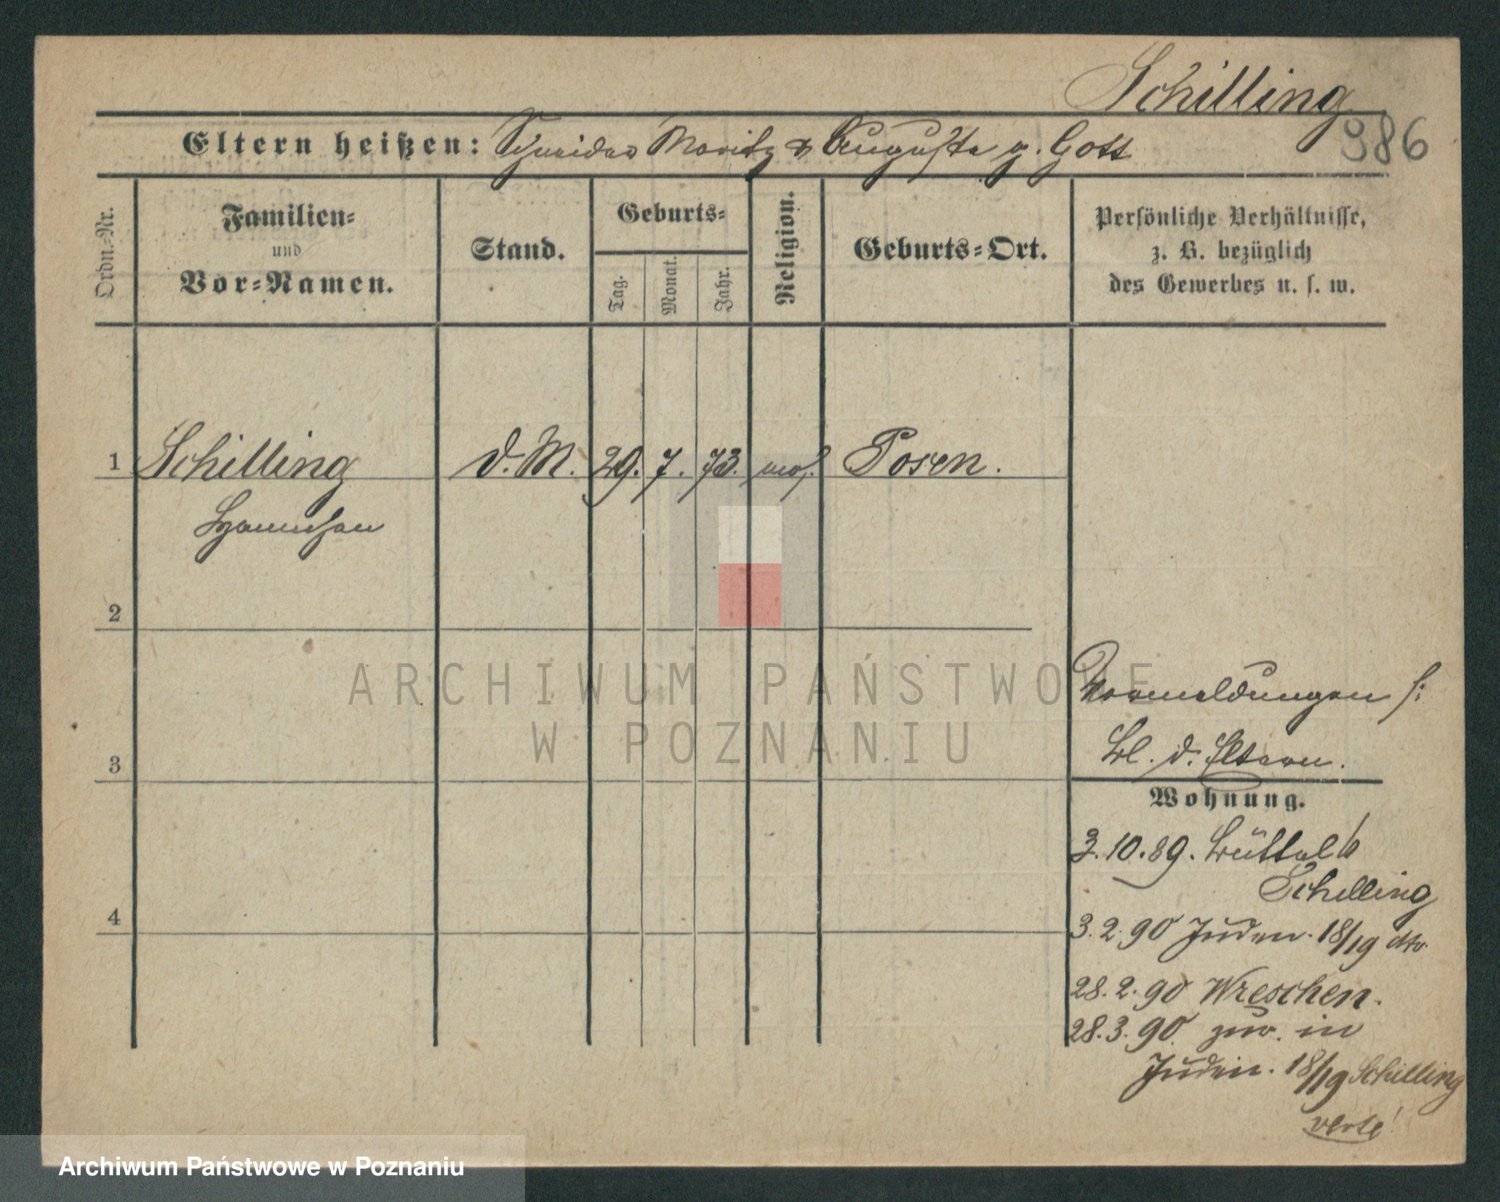 Schilling
986
Eltern heißen: Schneider Moritz & Auguste g. Gott
Ordn.-Nr.
Familien-
und
Vor-Namen.
Stand.
Geburts-
Tag.
Monat.
Jahr.
Religion.
Geburts-Ort.
Persönliche Verhältnisse,
z. B. bezüglich
des Gewerbes u. s. w.
1 Schilling d. M. 29. 7. 73. mos. Posen.
Hannchen
2
3
4
Vormeldungen s:
Bl. d. Eltern.
Wohnung.
3.10.89. Büttel 6
Schilling
3.2.90 Juden. 18/19 dto
28.2.90 Wreschen.
28.3.90. zur. in
Juden. 18/19 Schilling
verte!
ARCHIWUM PAŃSTWOWE
W POZNANIU
Archiwum Państwowe w Poznaniu